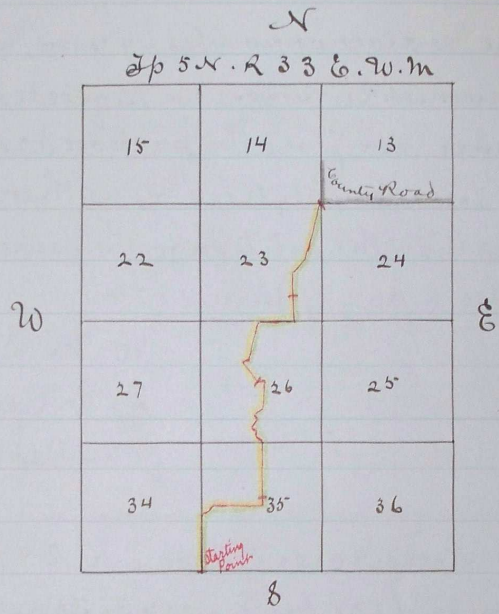 N
Tp 5 N. R 33 E. W. M
15 14 13
County Road
22 23 24
W
E
27 26 25
34 35 36
Starting
Point
S